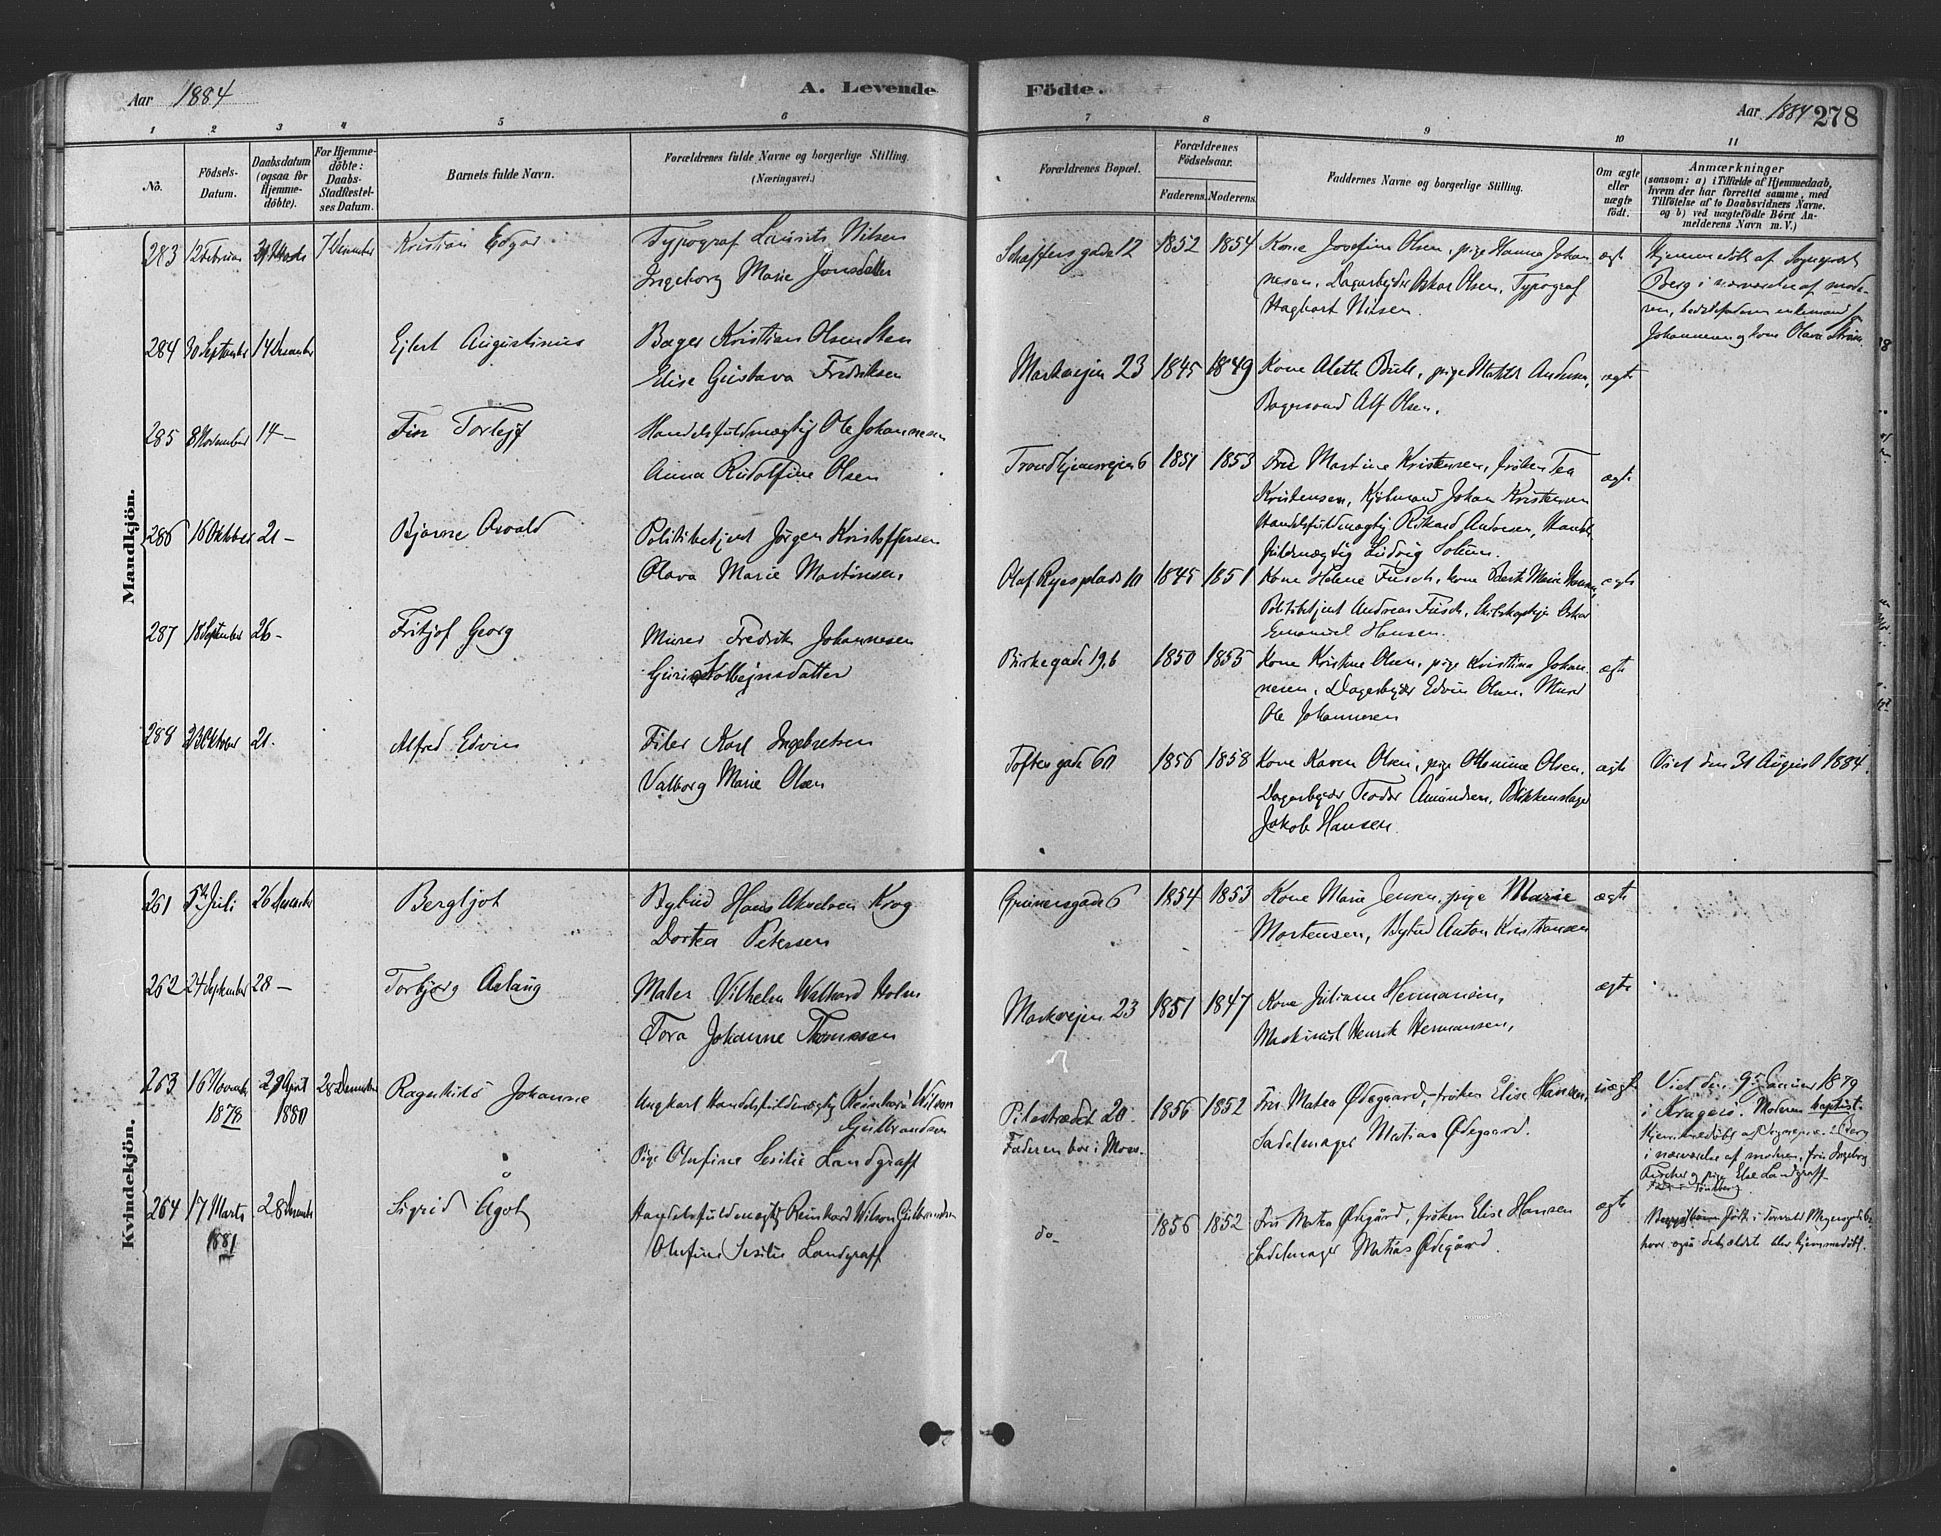 Aar 1884
A. Levende
Födte.
Aar 1884 278
1 2 3 4 5 6 7 8 9 10 11
No.
Födsels-Datum.
Daabsdatum (ogsaa for Hjemme-döbte).
For Hjemme-döbte: Daabs-Stadfæstel-ses Datum.
Barnets fulde Navn.
Forældrenes fulde Navne og borgerlige Stilling.
(Næringsvei.)
Forældrenes Bopæl.
Forældrenes Födselsaar.
Faderens. Moderens.
Faddernes Navne og borgerlige Stilling.
Om ægte eller uægte födt.
Anmærkninger
(saasom: a) i Tilfælde af Hjemmedaab,
hvem der har forrettet samme, med
Tilföielse af to Daabsvidners Navne.
og b) ved uægtefödte Börn An-
melderens Navn m. V.)
Mandkjön.
283 12 Februar 7 December Kristian Edgar
Typograf Laurits Nilsen
Ingeborg Marie Jonsdatter
Schæffersgade 12 1852 1854
Kone Josefine Olsen, pige Hanna Johan
nesen, Dagarbejder Oskar Olsen, Typograf
Hagbart Nilsen.
ægte
Hjemmedöbt af Sogneprest
Berg i nærværelse af mode-
ren,
Johannesen og kone Olava
284 30 September 14 December Ejlert Augustinus
Bager Kristian Olsen
Elise Gustava Fredriksen
Markvejen 23 1845 1849
Kone Alette Bull, pige Matilde Andersen,
Bagersvend Alf Olsen.
ægte
285 8 November 14 — Fin Torlejf
Handelsfuldmægtig Ole Johannesen
Anna Rudolfine Olsen
Trondhjemsvejen 6 1851 1853
Fru Martine Kristensen, fröken Tea
Kristensen, Kjöbmand Johan Kristensen
Handelsfuldmægtig Rikard Andresen, Handels
fuldmægtig Ludvig Solum.
ægte
286 16 Oktober 21 — Bjarne Osvald
Politibetjent Jörgen Kristoffersen
Olava Marie Martinsen,
Olaf Ryesplads 10 1845 1851
Kone Helene Fusch, kone Berte Marie Hansen,
Politibetjent Andreas Fusch,
Emanuel Hansen.
ægte
287 18 September 26 — Fritjof Georg
Murer Fredrik Johannesen
Gurine Kolbejnsdatter
Birkegade 19 b 1850 1855
Kone Kristine Olsen, pige Kristina Johan
nesen, Dagarbejder Edvin Olsen, Murer
Ole Johannesen
ægte
288 23 Oktober 21. Alfred Edvin
Filer Karl Ingebretsen
Valborg Marie Olsen
Toftesgade 60 1856 1858
Kone Karen Olsen, pige Ottomine Olsen,
Dagarbejder Teodor Amundsen, Blikkenslager
Jakob Hansen.
ægte
Viet den 31 August 1884.
Kvindekjön.
261 5te Juli 26 December Bergljot
Bybud Hans Akselsen Krog
Dortea Petersen
Grünersgade 6 1854 1853
Kone Marie Jensen, pige Marie
Mortensen, Bybud Anton Kristiansen
ægte
262 24 September 28 — Torbjörg Aslaug
Maler Vilhelm Walhard Holm
Tora Johanne Thomassen
Markvejen 23 1851 1847
Kone Juliane Hermansen,
Maskinist Henrik Hermansen,
ægte
263 16 Novemb 1878 29 April 1880 28 December Ragnhild Johanne
Ungkarl Handelsfuldmægtig Reinhard Wilson
Gulbrandsen
Pige Olufine Sesilie Landgraff
Pilestrædet 20.
Faderen bor i Moss.
1856 1852
Fru Matea Ödegaard, fröken Elise Hansen,
Sadelmager Matias Ödegaard.
uægte
Viet den 9de Januar 1879
i Kragerö. Moderen baptist.
Hjemmedöbt af Sognepr. Berg
i nærværelse af moderen, fru Ingeborg
Fischer og pige Else Landgraff
264 17 Marts 1881 28 December Sigrid Ågot
Handelsfuldmægtig Reinhard Wilson Gulbrandsen
Olufine Sesilie Landgraff
do — 1856 1852
Fru Matea Ödegård, fröken Elise Hansen
Sadelmager Matias Ödegård.
ægte
födt i Torvald Meyersgade
hvor også det ældste blev hjemmedöbt.